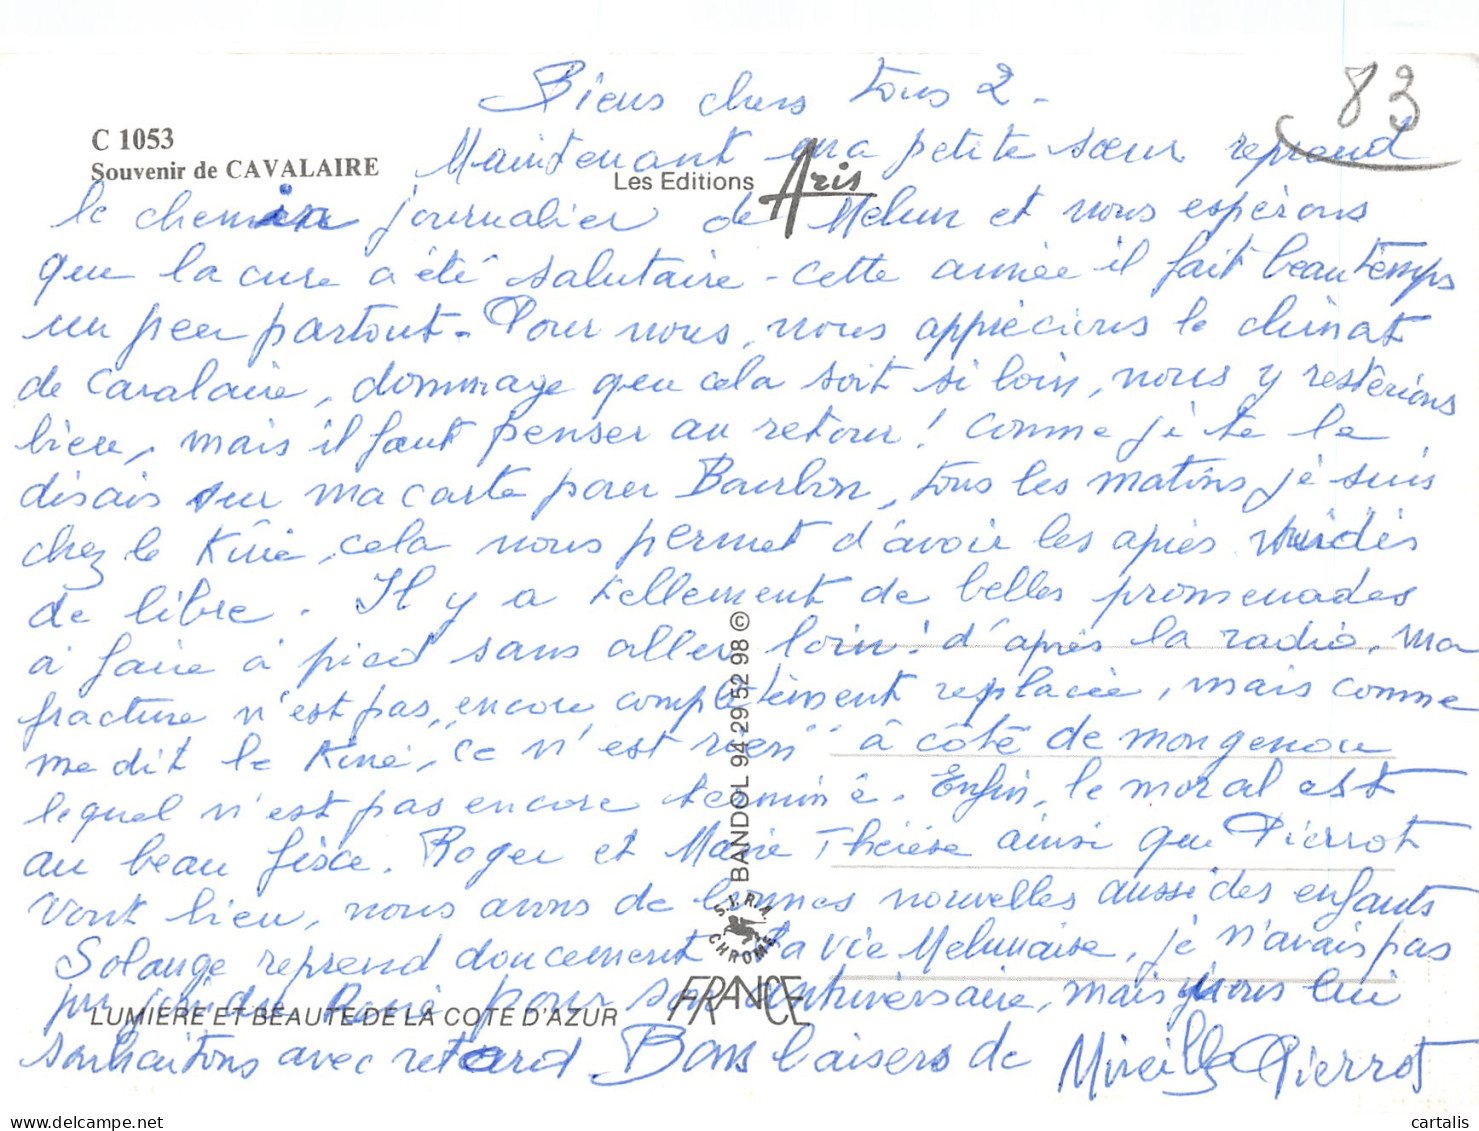 Biens chers tous 2 -
83
C 1053
Souvenir de CAVALAIRE
Les Editions Aris
Maintenant ma petite sœur reprend
le chemin journalier de Melun et nous espérons
que la cure a été salutaire - cette année il fait beau temps
un peu partout - Pour nous, nous apprécions le climat
de Cavalaire, dommage que cela soit si loin, nous y resterions
bien, mais il faut penser au retour ! Comme je te le
disais sur ma carte pour Bourbon, tous les matins je suis
chez le Kiné, cela nous permet d'avoir les après midis
de libre. Il y a tellement de belles promenades
à faire à pied sans aller loin ! d'après la radio, ma
fracture n'est pas encore complètement replacée, mais comme
me dit le Kiné, "ce n'est rien" à côté de mon genou
lequel n'est pas encore terminé. Enfin, le moral est
au beau fixe. Roger et Marie Thérèse ainsi que Pierrot
vont bien, nous avons de bonnes nouvelles aussi des enfants
Solange reprend doucement la vie Melunaise, je n'avais pas
pu joindre René pour son anniversaire, mais nous lui
souhaitons avec retard. Bons baisers de Mireille Pierrot
BANDOL 94 29 52 98 ©
S.I.R.A. CHROME
FRANCE
LUMIERE ET BEAUTE DE LA COTE D'AZUR
delcampe.net
cartalis